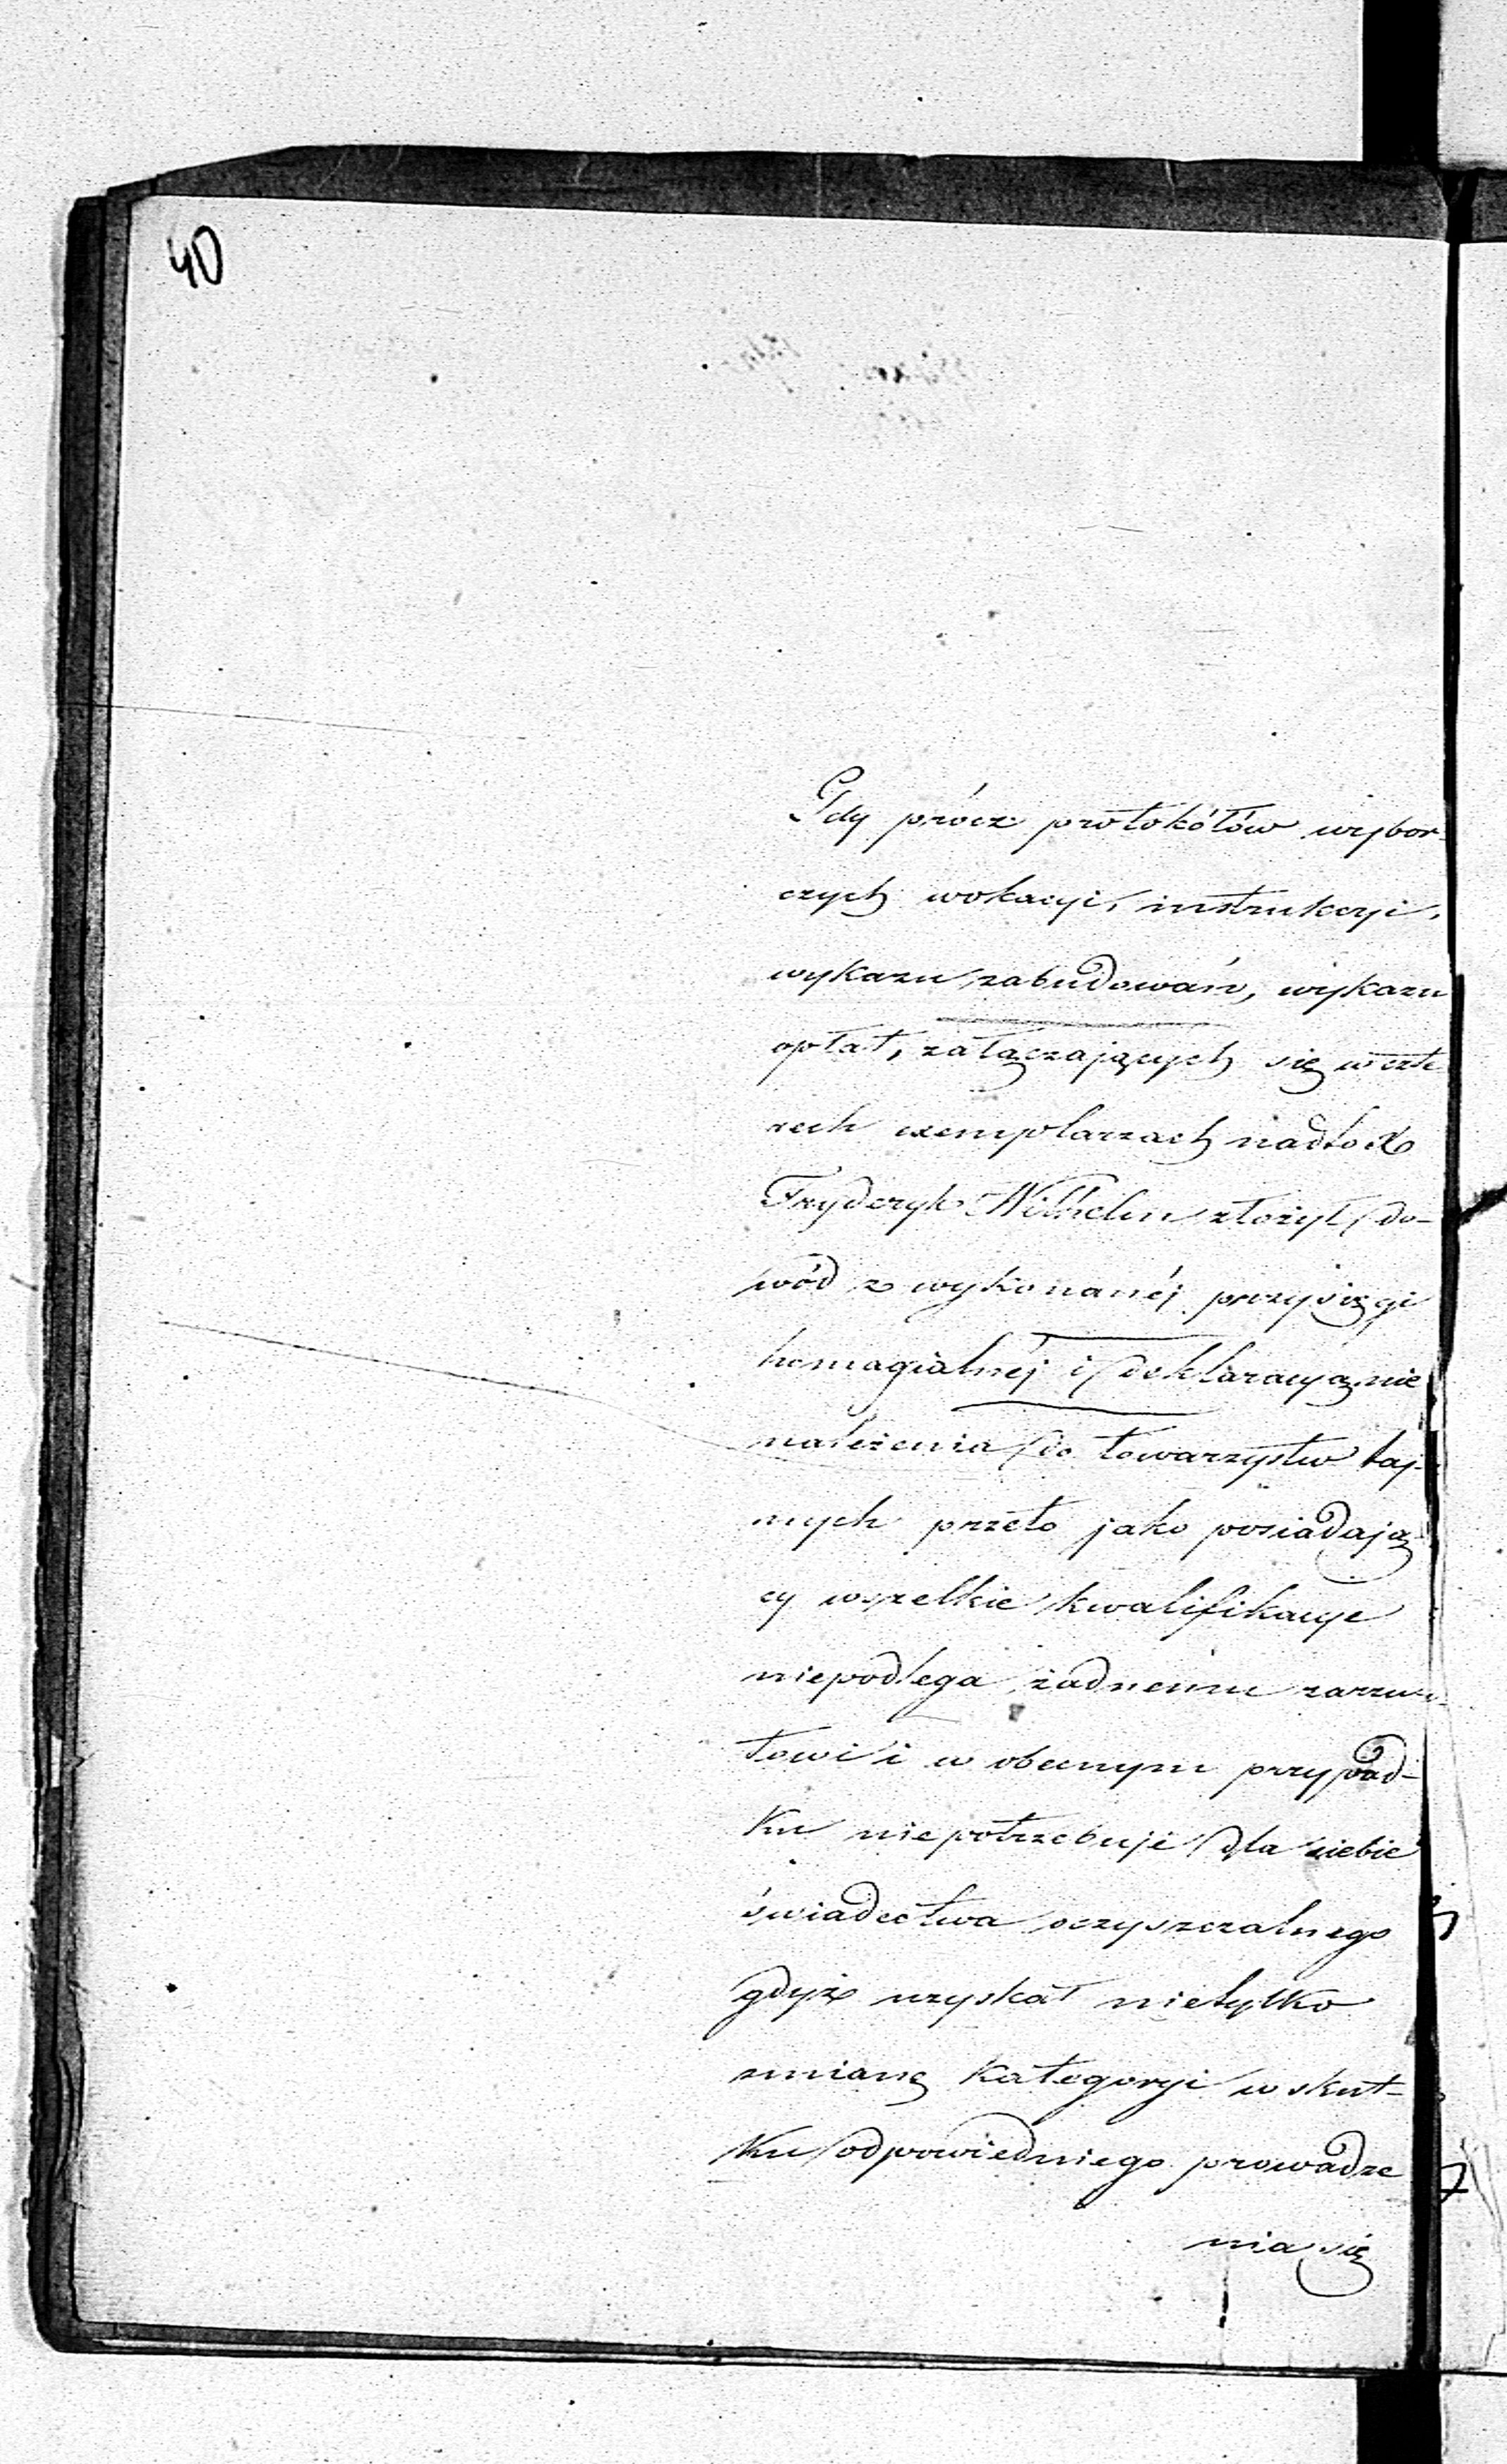 40
Gdy prócz protokółów wybor-
czych wokacyi, instrukcyi,
wykazu zabudowań, wykazu
opłat, załączających się w czte
rech exemplarzach nadto X
Fryderyk Wilhelm złożył do-
wód z wykonanéj przysięgi
homagialnéj i deklaracyą nie
należenia do towarzystw taj-
nych przeto jako posiadają
cy wszelkie kwalifikacye
niepodlega żadnemu zarzu-
towi i w obecnym przypad-
ku niepotrzebuje dla siebie
świadectwa oczyszczalnego
gdyż uzyskał nietylko
zmianę kategoryi w skut-
ku odpowiedniego prowadze
nia się